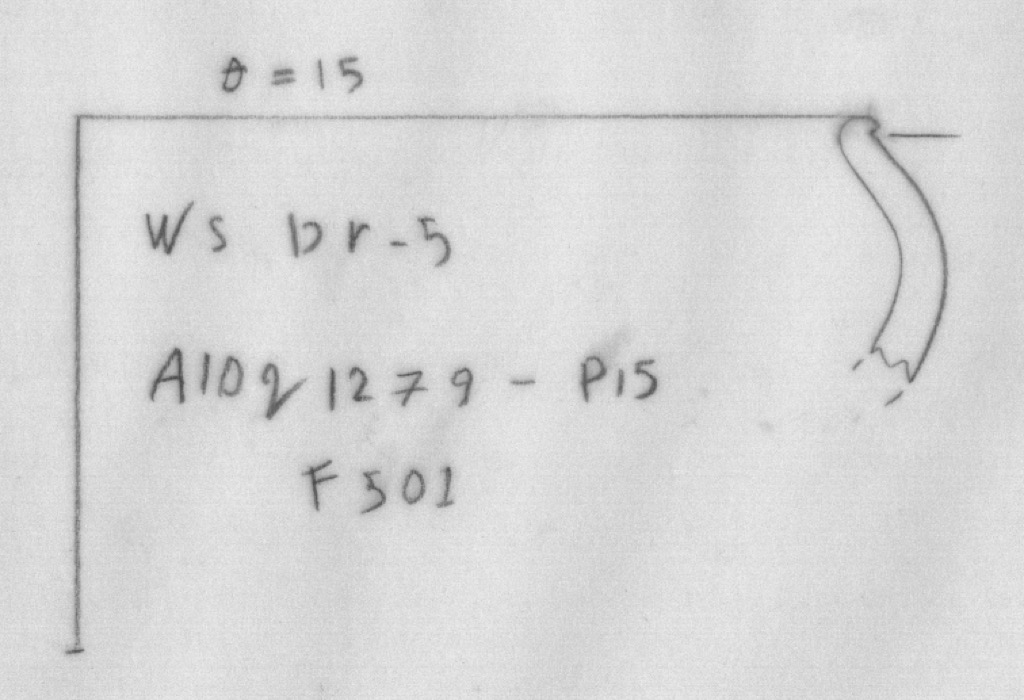 θ = 15
WS Dr-5
A10q 1279 - P15
F501